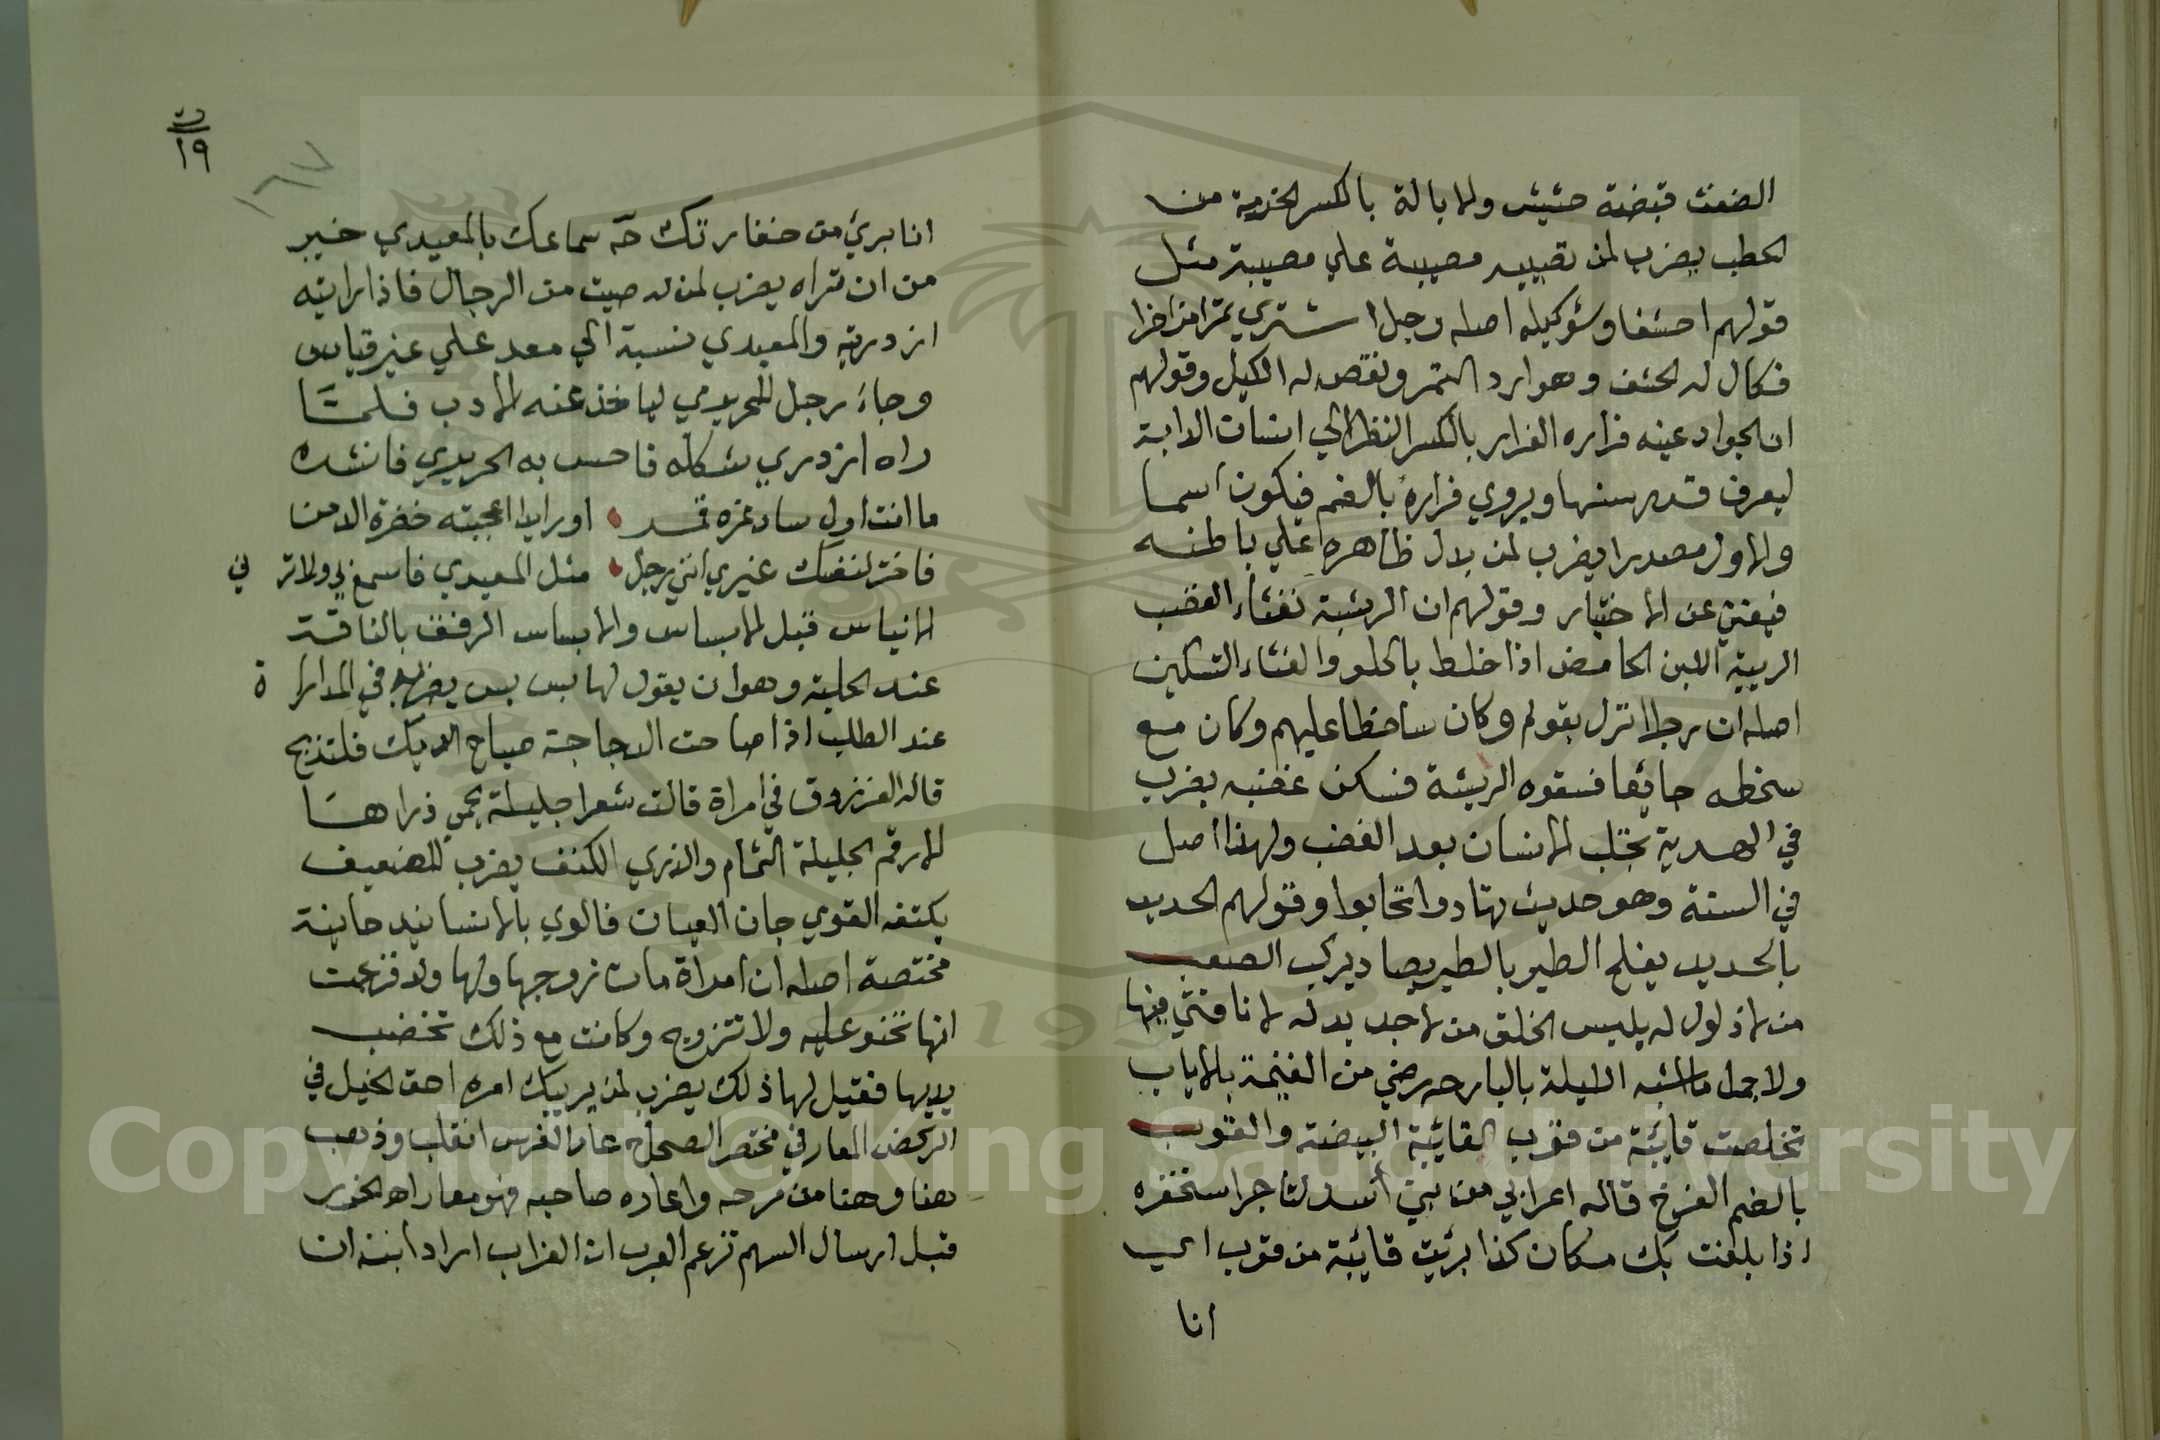 الضغث قبضة حشيش والابالة بالكسر الحزمة من
الحطب يضرب لمن تصيبه مصيبة علي مصيبة مثل
قولهم احشفا وسؤكيله اصله رجل اشتري تمرا من اخرا
فكال له الحشف وهو ارد التمر ونقص له الكيل وقولهم
ان الجواد عينه فراره الفرار بالكسر النظر الي اسنان الدابة
ليعرف قدر سنها ويروي فراره بالضم فيكون اسما
والاول مصدرا يضرب لمن يدل ظاهره علي باطنه
فيغني عن الاختبار وقولهم ان الرثية تفثاء الغضب
الرييية اللبن الحامض اذا خلط بالحلو والفثاء التسكين
اصله ان رجلا نزل بقوم وكان ساخطا عليهم وكان مع
سخطه جائعا فسقوه الرثيئة فسكن غضبه يضرب
في الهدية تجلب الانسان بعد الغضب ولهذا اصل
في السنة وهو حديث تهادوا تحابوا وقولهم الحديد
بالحديد يفلح الطير بالطير يصاد يركب الصعب
من لا ذلول له يلبس الخلق من لا جديد له لا ناقتي فيها
ولا جملي ما اشبه الليلة بالبارحه رضي من الغنيمة بالاياب
تخلصت قائبة من قوب القائبة البيضة والقوب
بالضم الفرخ قاله اعرابي من بني أسد لتاجر استخفره
اذا بلغت بك مكان كذا برئت قائبة من قوب اي
انا
ت
١٩
١٦٧
انا بريء من خفارتك حه سماعك بالمعيدي خير
من ان تراه يضرب لمن له صيت من الرجال فاذا رايته
ازدريته والمعيدي نسبة الي معد علي غير قياس
وجاء رجل للحريري لياخذ عنه الادب فلمّا
راه ازدري شكله فاحس به الحريري فانشده
ما انت اول سار غره قمر اورايد اعجبته خضرة الدمن
فاختر لنفسك غيري انني رجل مثل المعيدي فاسمع بي ولا تر ني
الايناس قبل الابساس والابساس الرفق بالناقة
عند الحلبة وهو ان يقول لها بس بس يضرب في المدارا ة
عند الطلب اذا صاحت الدجاجة صياح الديك فلتذبح
قاله الفرزدوق في امراة قالت شعرا جليلة يحمي ذراها
الارقم الجليلة الثمام والذري الكنف يضرب للضعيف
يكتنفه القوي جان العيان فالوي بالاسانيد حانية
مختصة اصله ان امراة مات زوجها ولها ولد فزعمت
انها تحنو عليه ولا تتزوج وكانت مع ذلك تخضب
يديها فقيل لها ذلك يضرب لمن يريبك امره احق الخيل في
الركض المعار في مختصر الصحاح عار الفرس انفلت وذهب
هنا وهنا من مرحه واعاره صاحبه فهو معار اه الخور
قبل ارسال السهم تزعم العرب ان الغراب اراد ابنه ان
Copyright © King Saud University